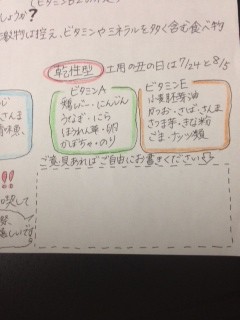 (ビタミンB2のほう)
しょうが?
激物は控え、ビタミンやミネラルを多く含む食べ物
乾性型
土用の丑の日は7/24と8/5
ビタミンA
鶏レバー・にんじん
うなぎ・にら
ほうれん草・卵
かぼちゃ・のり
ビタミンE
小麦胚芽油
かつお・さば・さんま
さつま芋・きな粉
ごま・ナッツ類
さんま
ご意見あればご自由にお書きください
!!